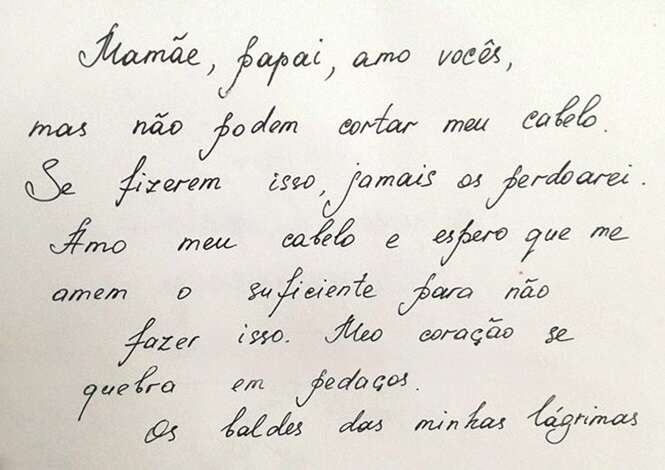 Mamãe, papai, amo vocês,
mas não podem cortar meu cabelo.
Se fizerem isso, jamais os perdoarei.
Amo meu cabelo e espero que me
amem o suficiente para não
fazer isso. Meo coração se
quebra em pedaços.
Os baldes das minhas lágrimas